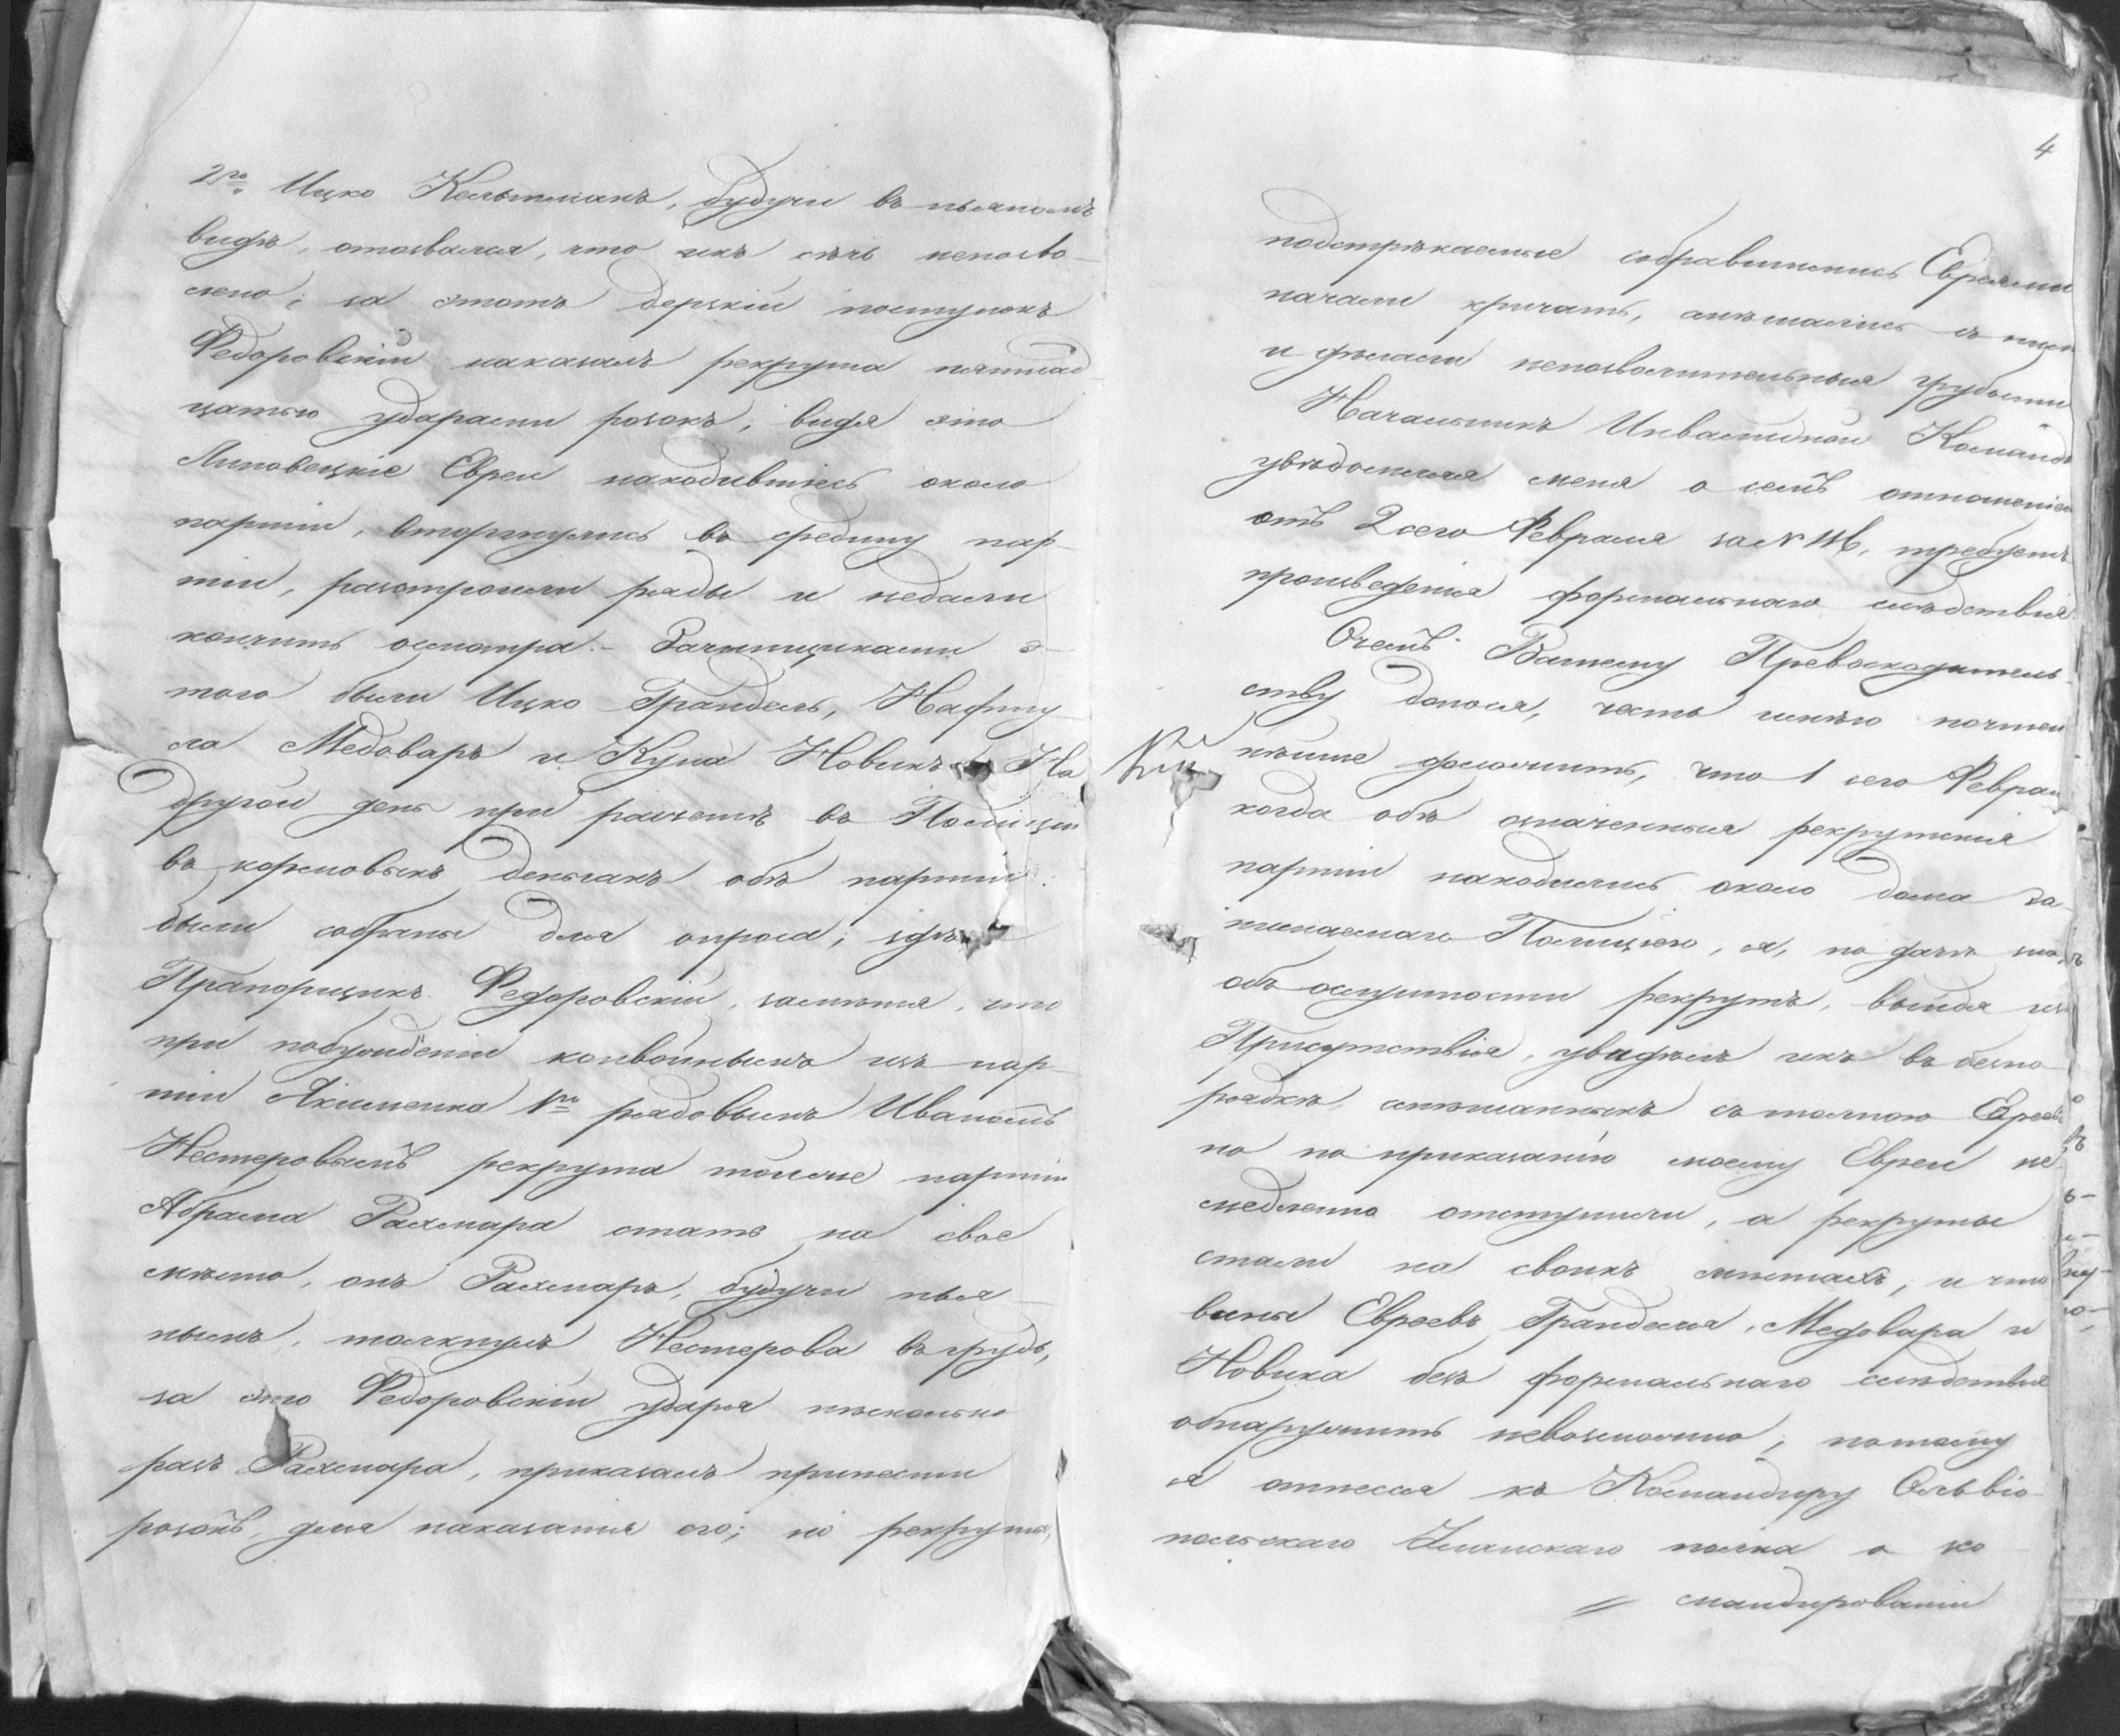 2го Ицко Кельтманъ, будучи въ пьяномъ
видѣ, отозвался, что ихъ сѣчь непозво-
лено; за этотъ дерзкій поступокъ
Федоровскій наказалъ рекрута пятнад
цатью ударами розокъ; видя это
Липовецкіе Евреи находившіесь около
партіи, вторгнулись въ средину пар-
тіи, разстроили ряды и недали
кончить осмотра.- Зачинщиками э-
того были Ицко Грандель, Нафту
ла Медоваръ и Куна Новикъ На
другой день при разчетѣ въ Полиціи
въ кормовыхъ деньгахъ обѣ партіи
были собраны для опроса; здѣсь
Прапорщикъ Федоровскій, замѣтя, что
при побужденіи конвойнымъ изъ пар-
тіи Акименка 1го рядовымъ Иваномъ
Нестеровымъ рекрута тойже партіи
Абрама Рахмара стать на свое
мѣсто, онъ Рахмаръ, будучи пья-
нымъ, толкнулъ Нестерова въ грудь,
за это Федоровскій ударя нѣсколько
разъ Рахмара, приказалъ принести
розокъ, для наказанія его; но рекруты,
4
подстрѣкаемые собравшимись Евреями
начали кричать, смѣшались съ ними
и дѣлали непозволительныя грубости
Начальникъ Инвалидной Команды
увѣдомляя меня о семъ отношеніемъ
отъ 2 сего Февраля за № 116, требуетъ
произведенія формальнаго слѣдствія.
О чемъ Вашему Превосходитель-
ству донося, честь имѣю почтен
нѣйше доложить, что 1 сего Февраля
когда обѣ означенныя рекрутскія
партіи находились около дома за-
нимаемаго Полиціею, я, по дачѣ
объ осмутности рекрутъ, выйдя изъ
Присутствія, увидѣлъ ихъ въ безпо-
рядкѣ, смѣшанныхъ съ толпою Евреевъ
но по приказанію моему Евреи не-
медленно отступили, а рекруты
стали на своихъ мѣстахъ; и что
вины Евреевъ Гранделя, Медовара и
Новика безъ формальнаго слѣдствія
обнаружить невозможно; потому
я отнесся къ Командиру Ольвіо-
польскаго Уланскаго полка о ко
мандированіи